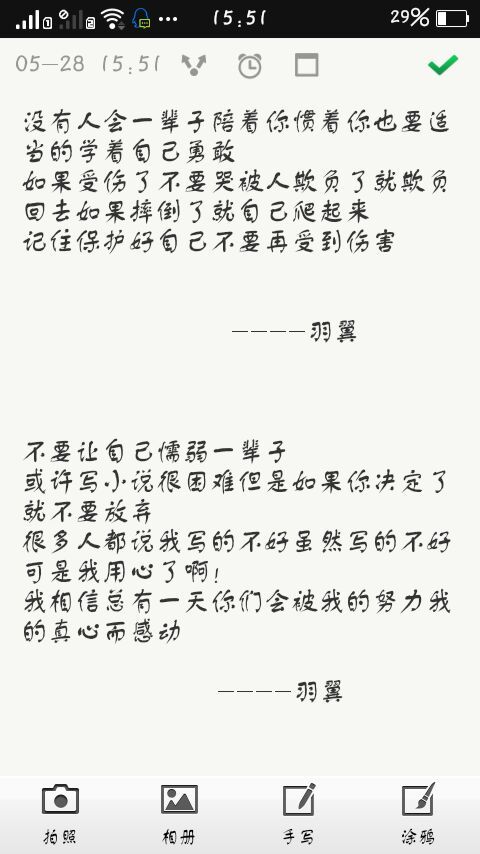 15:51
29%
05-28 15:51
没有人会一辈子陪着你惯着你也要适
当的学着自己勇敢
如果受伤了不要哭被人欺负了就欺负
回去如果摔倒了就自己爬起来
记住保护好自己不要再受到伤害
————羽翼
不要让自己懦弱一辈子
或许写小说很困难但是如果你决定了
就不要放弃
很多人都说我写的不好虽然写的不好
可是我用心了啊!
我相信总有一天你们会被我的努力我
的真心而感动
————羽翼
拍照 相册 手写 涂鸦